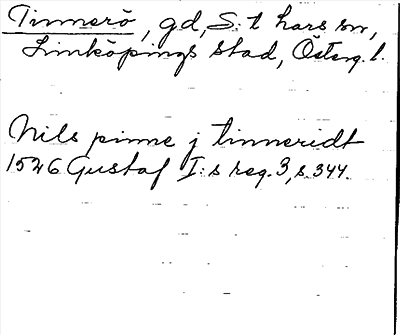 Tinnerö, gd, S:t Lars sn,
Linköpings stad, Österg. l.
Nils pinne j tinneridt
1526 Gustaf I:s reg. 3, s. 344.